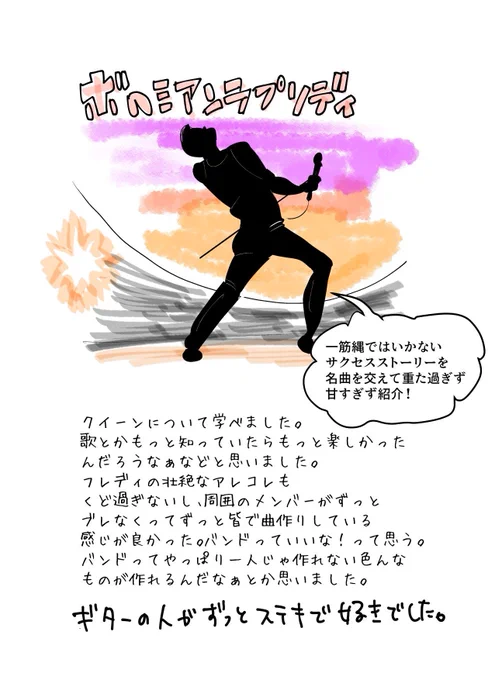 ボヘミアンラプソディ
一筋縄ではいかない
サクセスストーリーを
名曲を交えて重た過ぎず
甘すぎず紹介！
クイーンについて学べました。
歌とかもっと知っていたらもっと楽しかった
んだろうなぁなどと思いました。
フレディの壮絶なアレコレも
くど過ぎないし、周囲のメンバーがずっと
ブレなくってずっと皆で曲作りしている
感じが良かった。バンドっていいな！って思う。
バンドってやっぱり一人じゃ作れない色んな
ものが作れるんだなぁとか思いました。
ギターの人がずっとステキで好きでした。